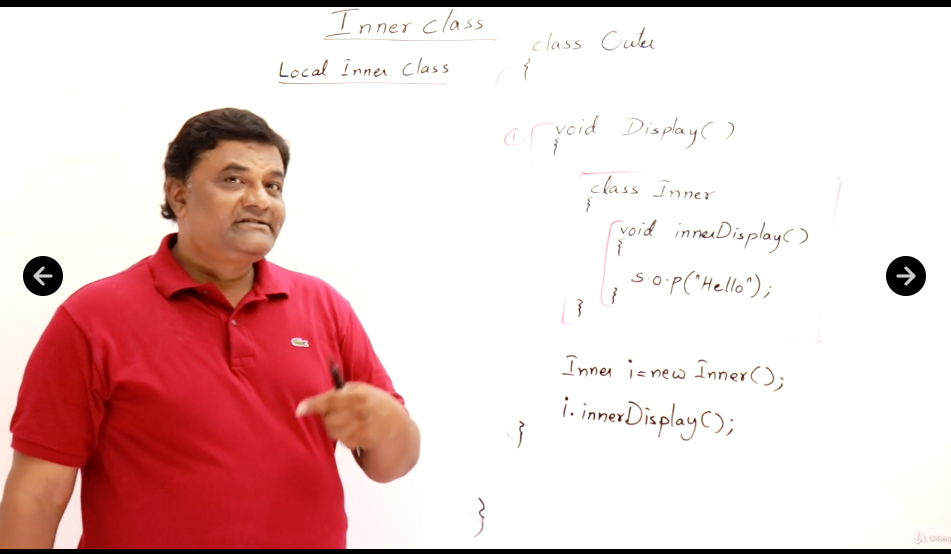 Inner class
Local Inner Class
class Outer
{
① void Display()
{
class Inner
{
void innerDisplay()
{
S.o.p("Hello");
}
}
Inner i=new Inner();
i.innerDisplay();
}
}